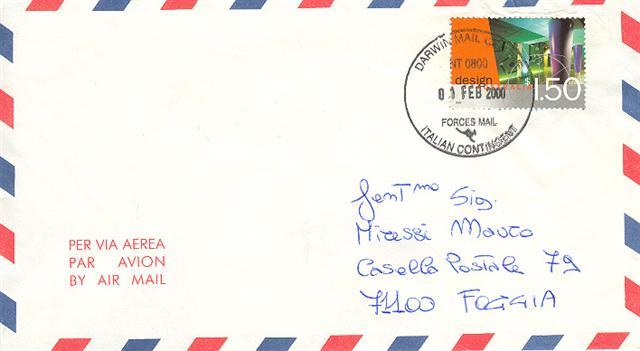 DARWIN MAIL
NT 0800
design
FEB 2000
AUSTRALIA
1.50
FORCES MAIL
ITALIAN CONTINGENT
Gent.mo Sig.
Micessi Mauro
Casella Postale 79
71100 FOGGIA
PER VIA AEREA
PAR AVION
BY AIR MAIL